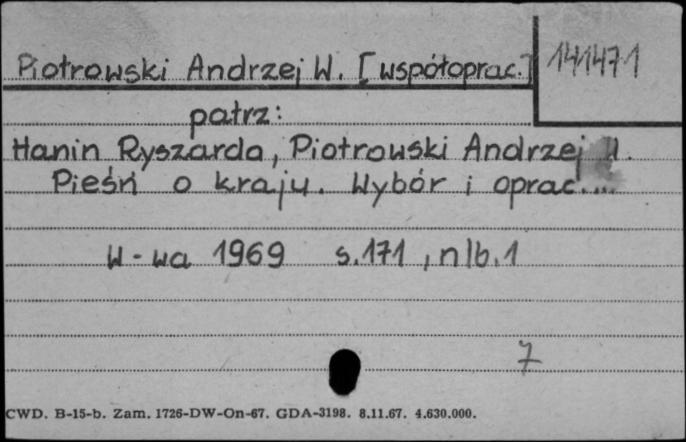 Piotrowski Andrzej W. [współoprac.] 141471
patrz:
Hanin Ryszarda, Piotrowski Andrzej W.
Pieśń o kraju. Wybór i oprac....
W-wa 1969 s.171, nlb.1
7
CWD. B-15-b. Zam. 1726-DW-On-67. GDA-3198. 8.11.67. 4.630.000.